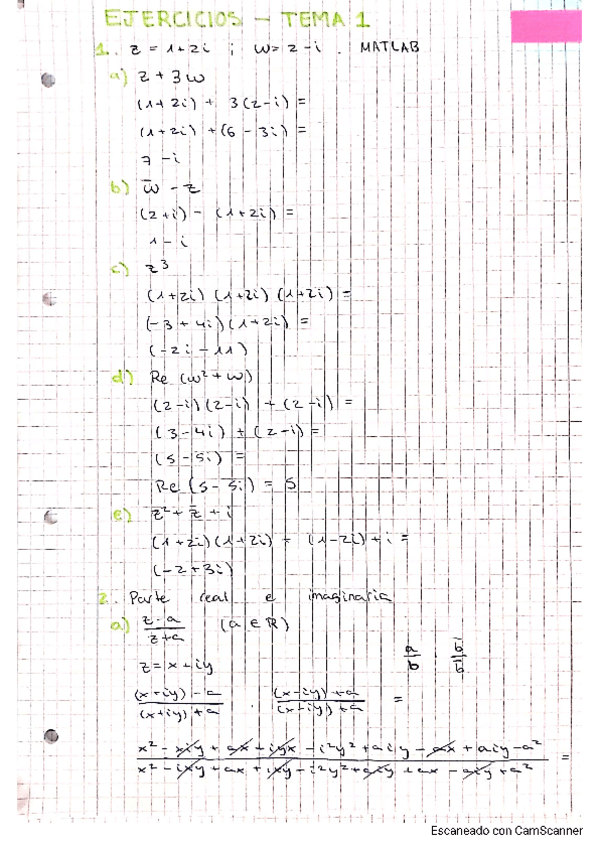 EJERCICIOS - TEMA 1
1. z = 1+2i ; w = 2-i . MATLAB
a) z + 3w
(1+2i) + 3(2-i) =
(1+2i) + (6 - 3i) =
7 - i
b) w̅ - z
(2+i) - (1+2i) =
1 - i
c) z³
(1+2i) (1+2i) (1+2i) =
(-3 + 4i) (1+2i) =
(-2i - 11)
d) Re (w² + w)
(2-i) (2-i) + (2-i) =
(3-4i) + (2-i) =
(5-5i) =
Re (5-5i) = 5
e) z² + z̅ + i
(1+2i) (1+2i) + (1-2i) + i =
(-2+3i)
2. Parte real e imaginaria
a) z-a / z+a (a ∈ ℝ)
z = x + iy
a/b . b̅/b̅
(x+iy) - a / (x+iy) + a . (x-iy) + a / (x-iy) + a =
x² - xiy + ax + iyx - i²y² + aiy - ax + aiy - a² =
x² - ixy + ax + ixy - i²y² + aiy + ax - aiy + a²
Escaneado con CamScanner